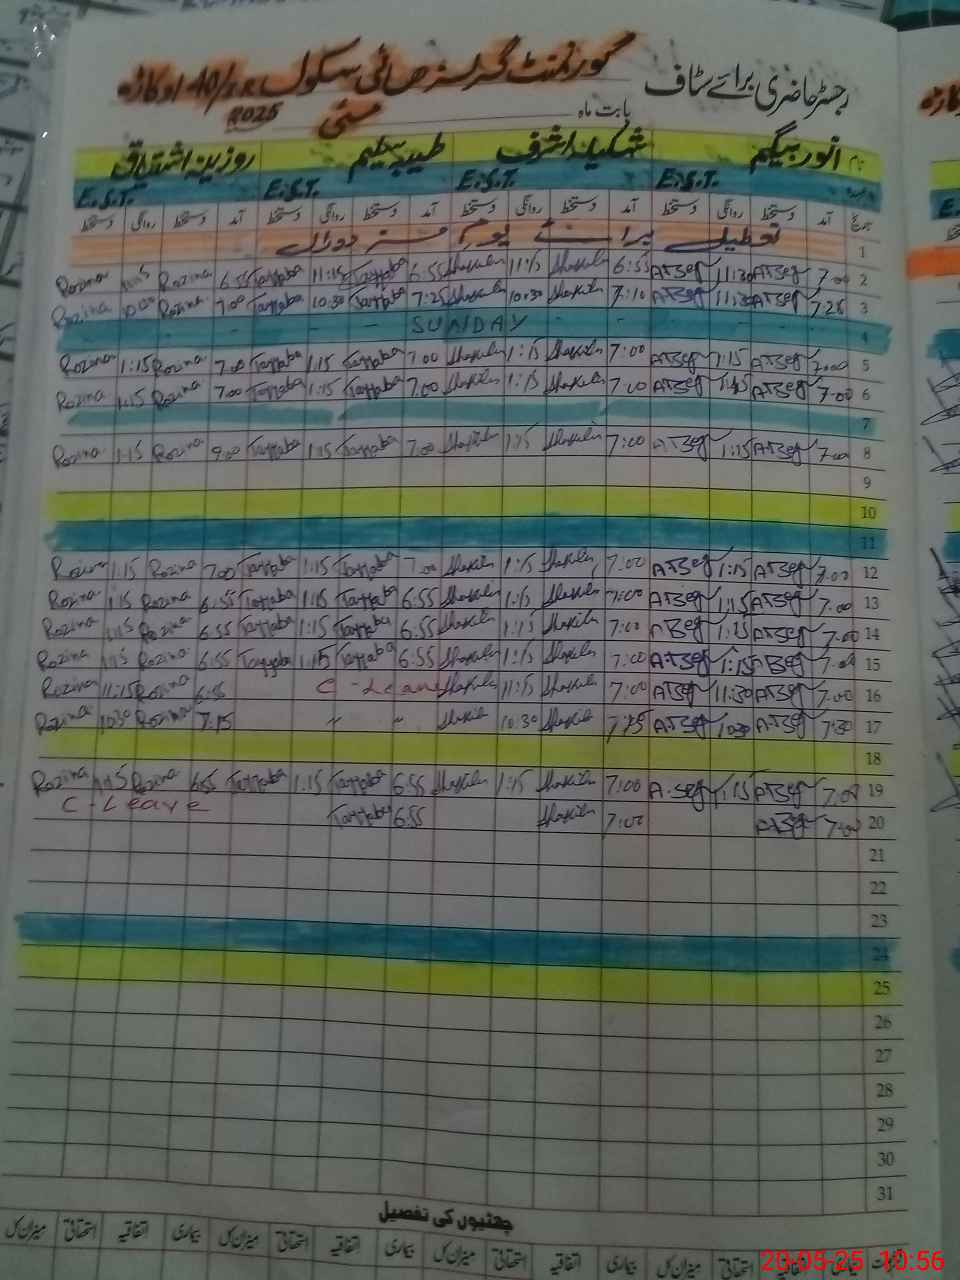 رجسٹر حاضری برائے سٹاف گورنمنٹ گرلز ہائی سکول اوکاڑہ
بابت ماہ مئی 2025
نام انور بیگم شکیلہ اشرف طیبہ سلیم روزینہ اشتیاق
E.S.T. E.S.T. E.S.T. E.S.T.
تاریخ آمد دستخط روانگی دستخط آمد دستخط روانگی دستخط آمد دستخط روانگی دستخط آمد دستخط روانگی دستخط
1 تعطیل برائے یوم مزدوراں
Rozina 11:15 Rozina 6:55 Tayyaba 11:15 Tayyaba 6:55 Shakila 11:15 Shakila 6:55 A.T.Beg 11:30 A.T.Beg 7.00 2
Rozina 10:30 Rozina 7.00 Tayyaba 10:30 Tayyaba 7:25 Shakila 10:30 Shakila 7:10 A.T.Beg 11:30 A.T.Beg 7.28 3
SUNDAY 4
Rozina 1:15 Rozina 7.00 Tayyaba 1:15 Tayyaba 7.00 Shakila 1:15 Shakila 7:00 A.T.Beg 1:15 A.T.Beg 7.00 5
Rozina 1:15 Rozina 7.00 Tayyaba 1:15 Tayyaba 7.00 Shakila 1:15 Shakila 7:00 A.T.Beg 1:15 A.T.Beg 7.00 6
7
Rozina 1:15 Rozina 9.00 Tayyaba 1:15 Tayyaba 7.00 Shakila 1:15 Shakila 7:00 A.T.Beg 1:15 A.T.Beg 7.00 8
9
10
11
Rozina 1:15 Rozina 7.00 Tayyaba 1:15 Tayyaba 7.00 Shakila 1:15 Shakila 7:00 A.T.Beg 1:15 A.T.Beg 7.00 12
Rozina 1:15 Rozina 6:55 Tayyaba 1:15 Tayyaba 6.55 Shakila 1:15 Shakila 7:00 A.T.Beg 1:15 A.T.Beg 7.00 13
Rozina 1:15 Rozina 6.55 Tayyaba 1:15 Tayyaba 6.55 Shakila 1:15 Shakila 7:00 A.T.Beg 1:15 A.T.Beg 7.00 14
Rozina 1:15 Rozina 6:55 Tayyaba 1:15 Tayyaba 6.55 Shakila 1:15 Shakila 7:00 A.T.Beg 1:15 A.T.Beg 7.00 15
Rozina 11:15 Rozina 6:55 C-Leave Shakila 11:15 Shakila 7:00 A.T.Beg 11:30 A.T.Beg 7.00 16
Rozina 10:30 Rozina 7.15 〃 〃 Shakila 10:30 Shakila A.T.Beg A.T.Beg 7:30 17
18
Rozina 1:15 Rozina 6:55 Tayyaba 1.15 Tayyaba 6:55 Shakila 1:15 Shakila 7:00 A.T.Beg 1:15 A.T.Beg 7.00 19
C-Leave Tayyaba 6:55 Shakila 7:00 A.T.Beg 7.00 20
21
22
23
24
25
26
27
28
29
30
31
چھٹیوں کی تفصیل
بیماری اتفاقیہ استحقاقی میزان کل بیماری اتفاقیہ استحقاقی میزان کل بیماری اتفاقیہ استحقاقی میزان کل
20-05-25 10:56